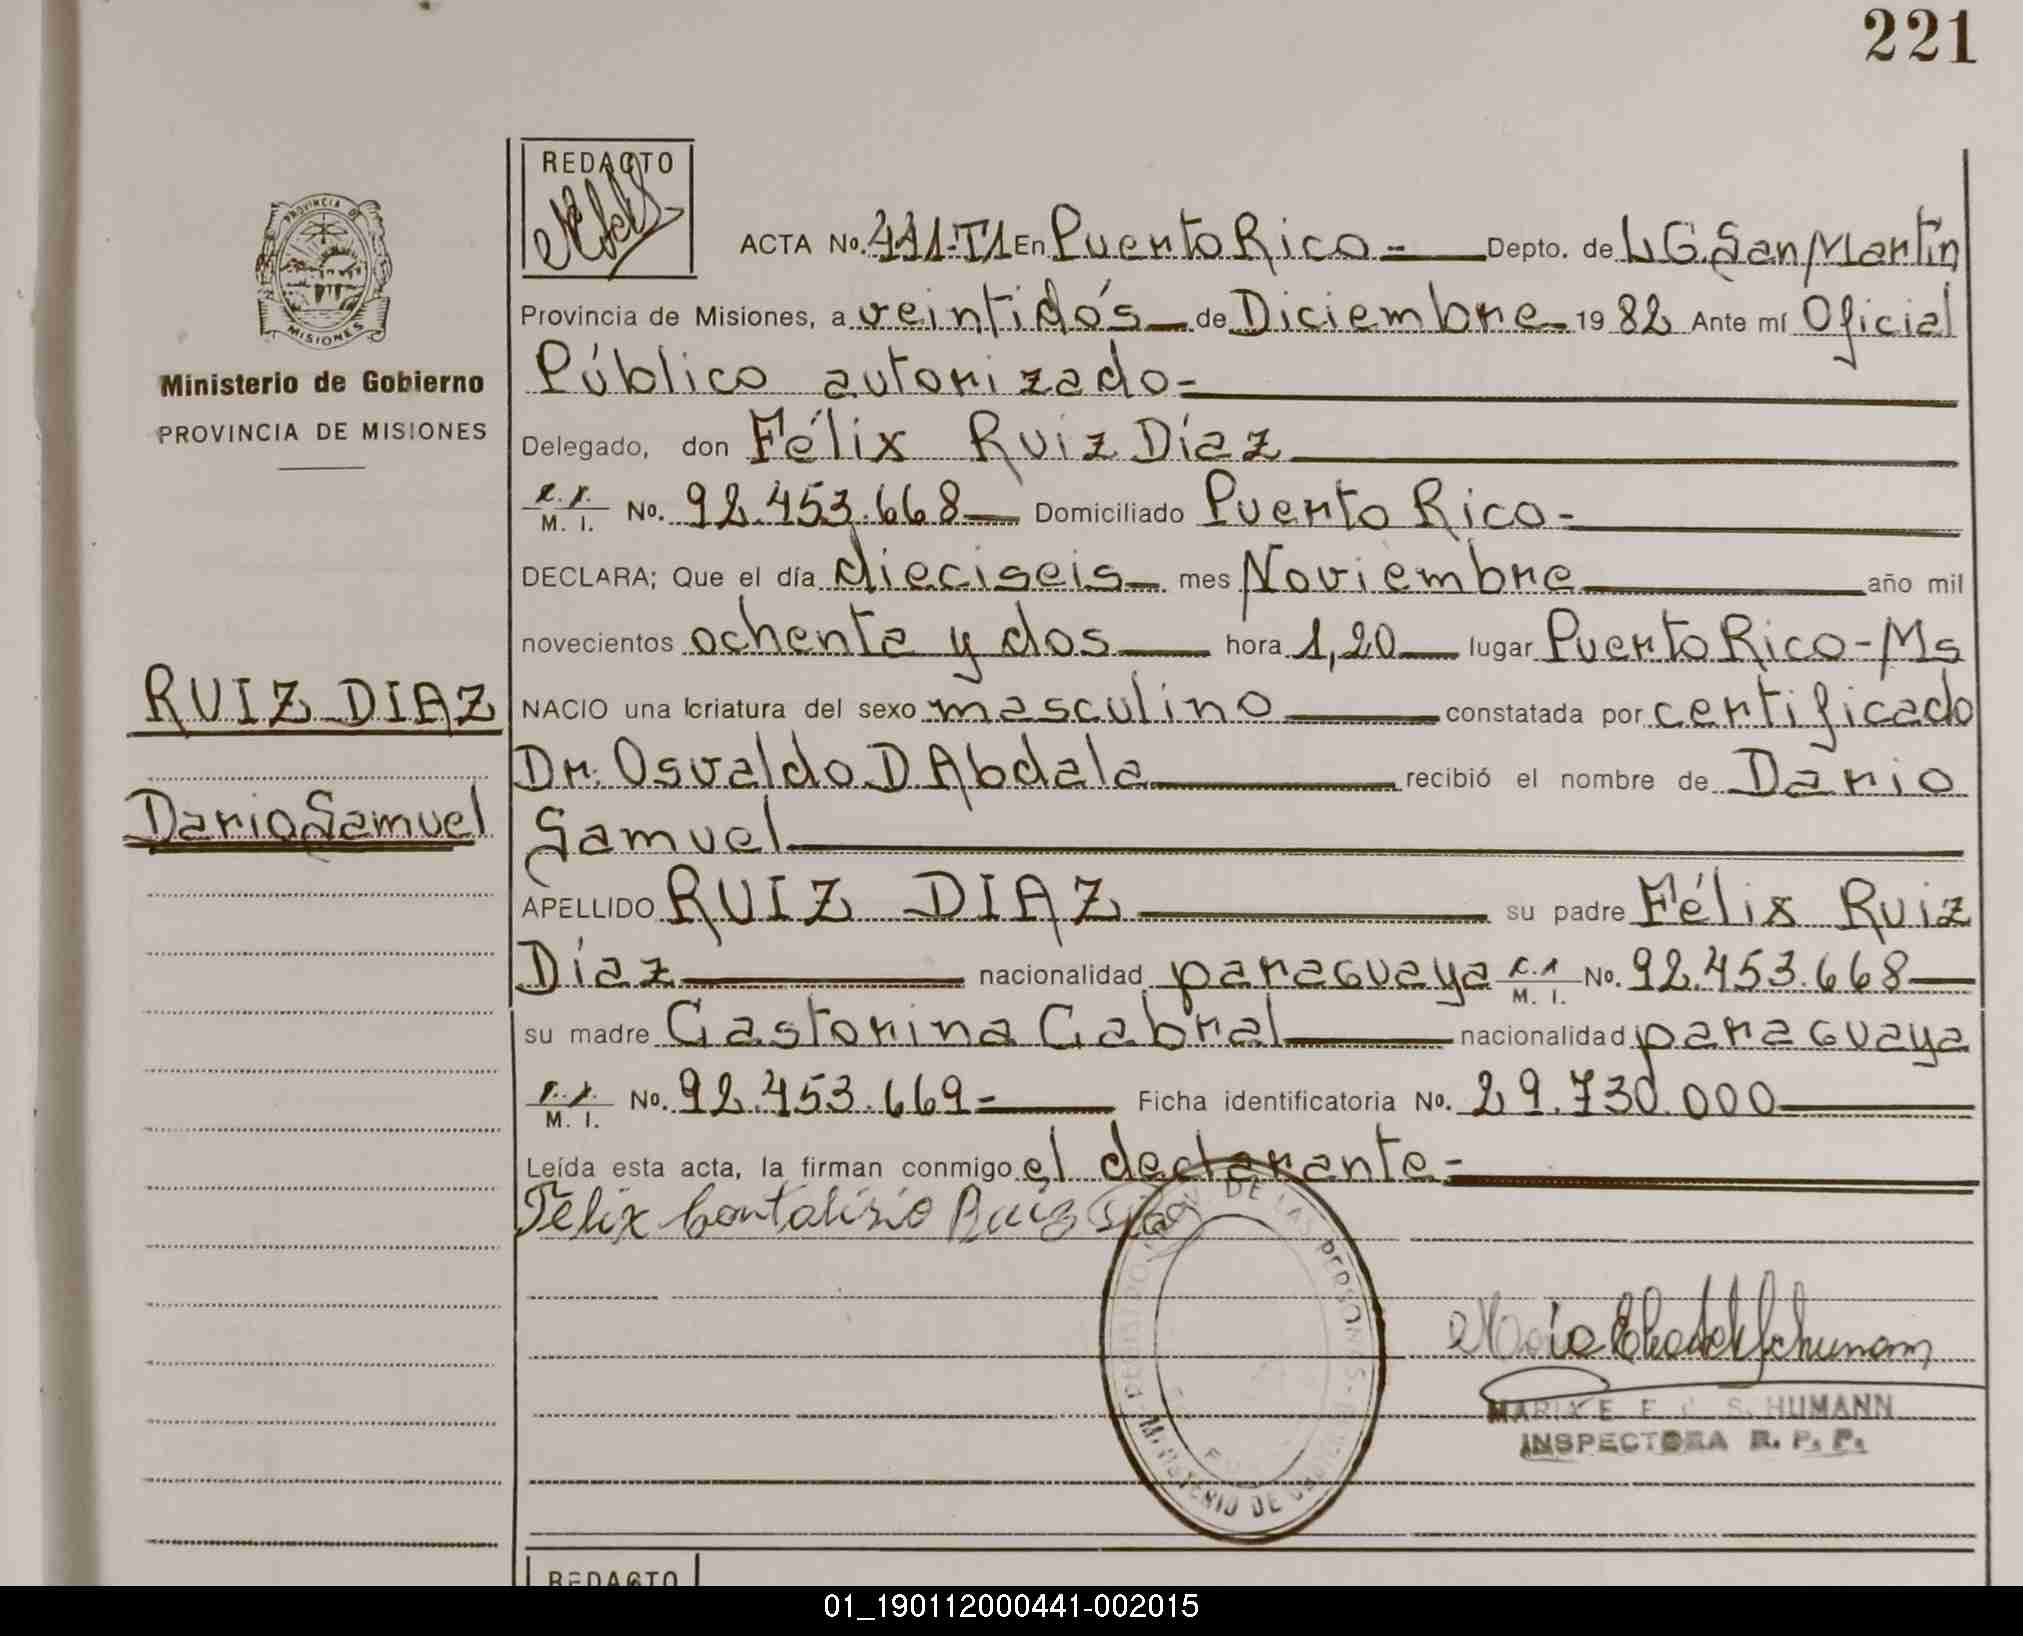 221
REDACTO
PROVINCIA DE
MISIONES
Ministerio de Gobierno
PROVINCIA DE MISIONES
RUIZ DIAZ
Dario Samuel
ACTA No. 441-T1 En Puerto Rico = Depto. de L G. San Martín
Provincia de Misiones, a veintidós de Diciembre 19 82 Ante mí Oficial
Público autorizado=
Delegado, don Félix Ruiz Díaz
M. I. No. 92.453.668 Domiciliado Puerto Rico-
DECLARA; Que el día dieciseis mes Noviembre año mil
novecientos ochenta y dos hora 1,20 lugar Puerto Rico-Ms
NACIO una criatura del sexo masculino constatada por certificado
Dr. Osvaldo D Abdala recibió el nombre de Dario
Samuel
APELLIDO RUIZ DIAZ su padre Félix Ruiz
Díaz nacionalidad paraguaya M. I. No. 92.453.668
su madre Castorina Cabral nacionalidad paraguaya
M. I. No. 92.453.669- Ficha identificatoria No. 29.730.000
Leída esta acta, la firman conmigo el declarante-
Felix Ruiz
DE LAS PERSONAS
MINISTERIO DE
SCHUMANN
INSPECTORA R. P. P.
REDACTO
01_190112000441-002015